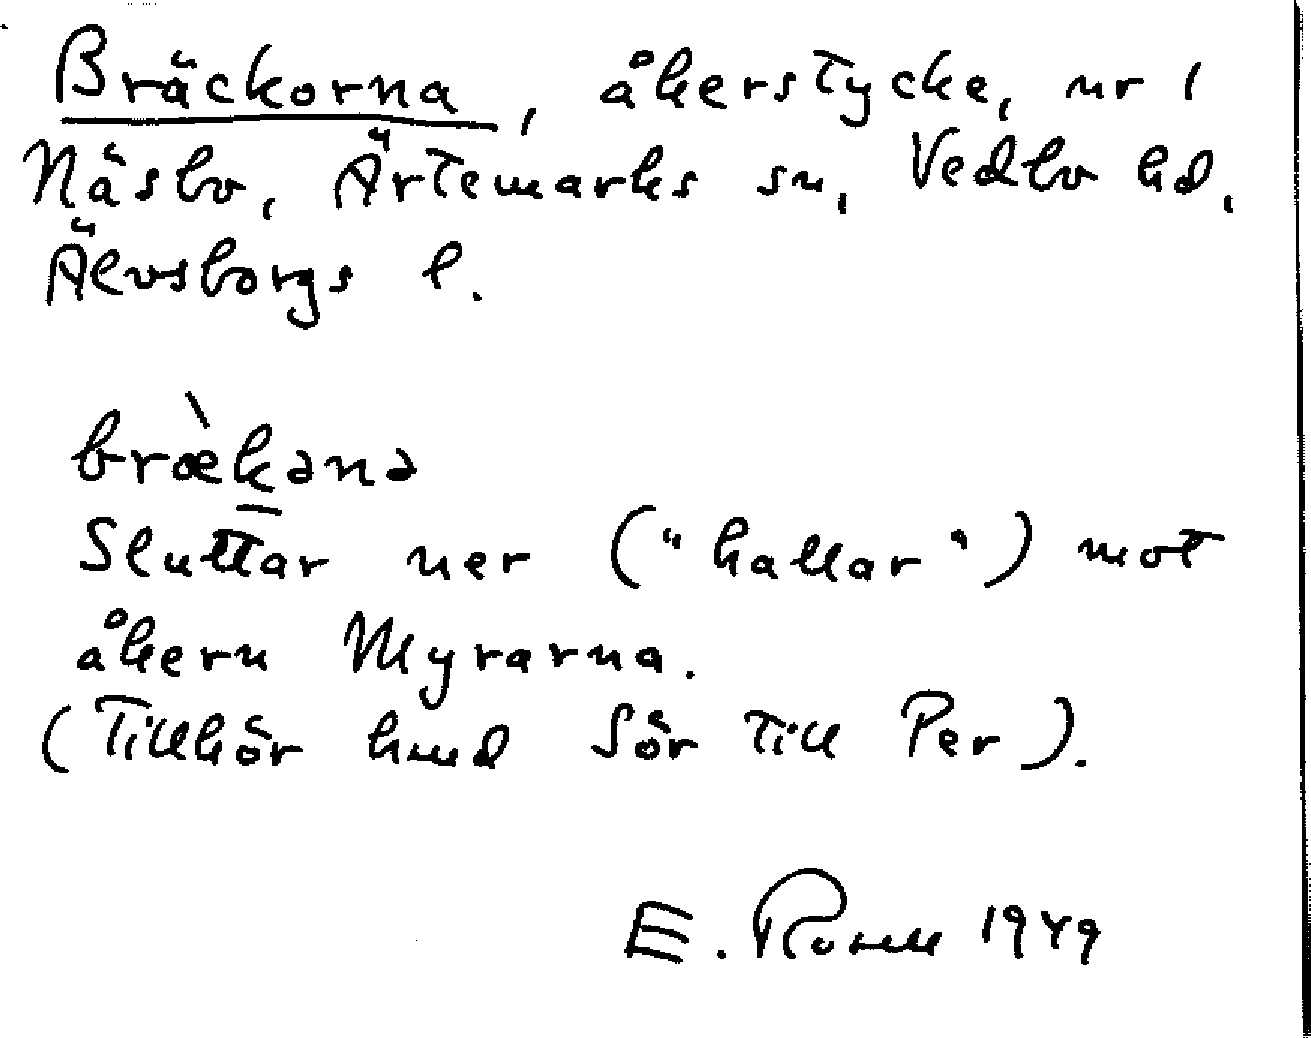 Bräckorna, åkerstycke, nr 1
Näsbo, Ärtemarks sn, Vedbo hd,
Älvsborgs l.
bræ̀kənə
Sluttar ner ("hallar") mot
åkern Myrarna.
(Tillhör hmd Sör till Per).
E. 1949